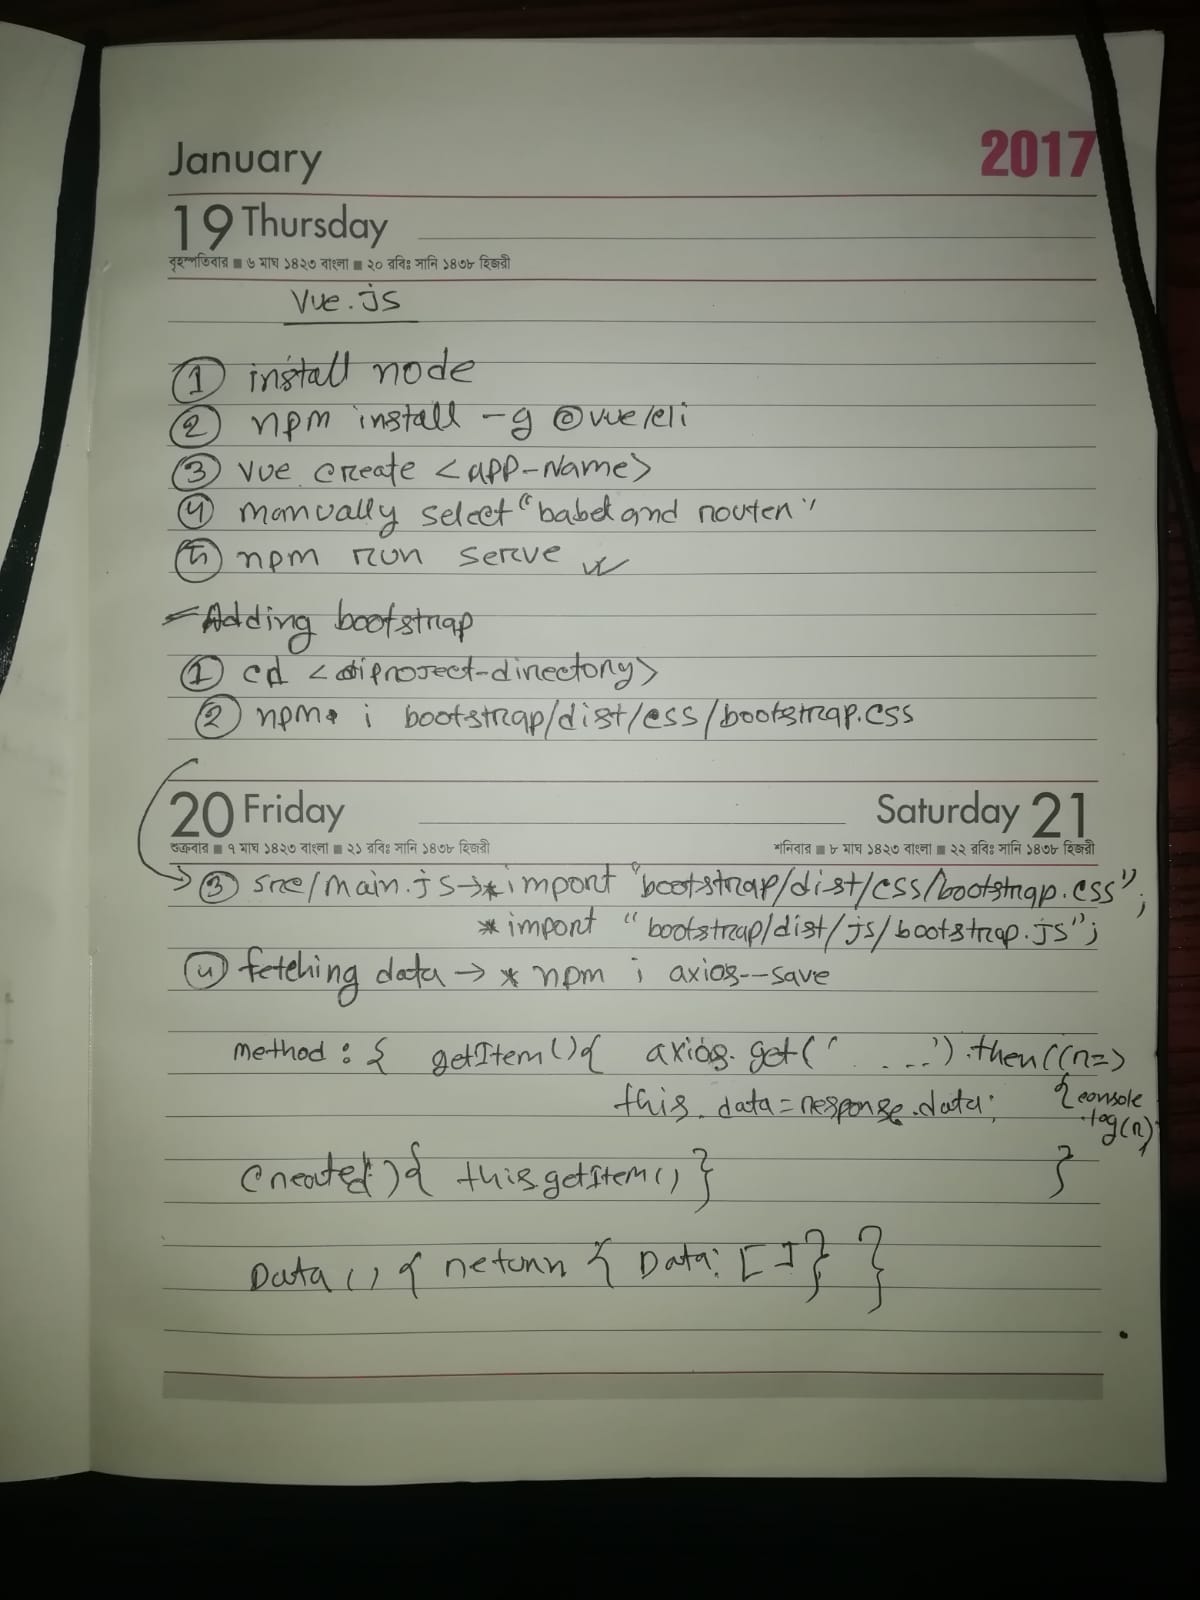 January 2017
19 Thursday
বৃহস্পতিবার ■ ৬ মাঘ ১৪২৩ বাংলা ■ ২০ রবিঃ সানি ১৪৩৮ হিজরী
Vue.js
① install node
② npm install -g @vue/cli
③ vue create <app-Name>
④ manually select "babel and router"
⑤ npm run serve
Adding bootstrap
① cd <project-directory>
② npm i bootstrap/dist/css/bootstrap.css
20 Friday Saturday 21
শুক্রবার ■ ৭ মাঘ ১৪২৩ বাংলা ■ ২১ রবিঃ সানি ১৪৩৮ হিজরী শনিবার ■ ৮ মাঘ ১৪২৩ বাংলা ■ ২২ রবিঃ সানি ১৪৩৮ হিজরী
→ ③ src/main.js → * import "bootstrap/dist/css/bootstrap.css";
* import "bootstrap/dist/js/bootstrap.js";
④ fetching data → * npm i axios --save
method: { getItem(){ axios.get(' ....').then((r=>
this.data=response.data; {console
.log(r)
created(){ this.getItem() } }
Data() { return { Data: [] } }